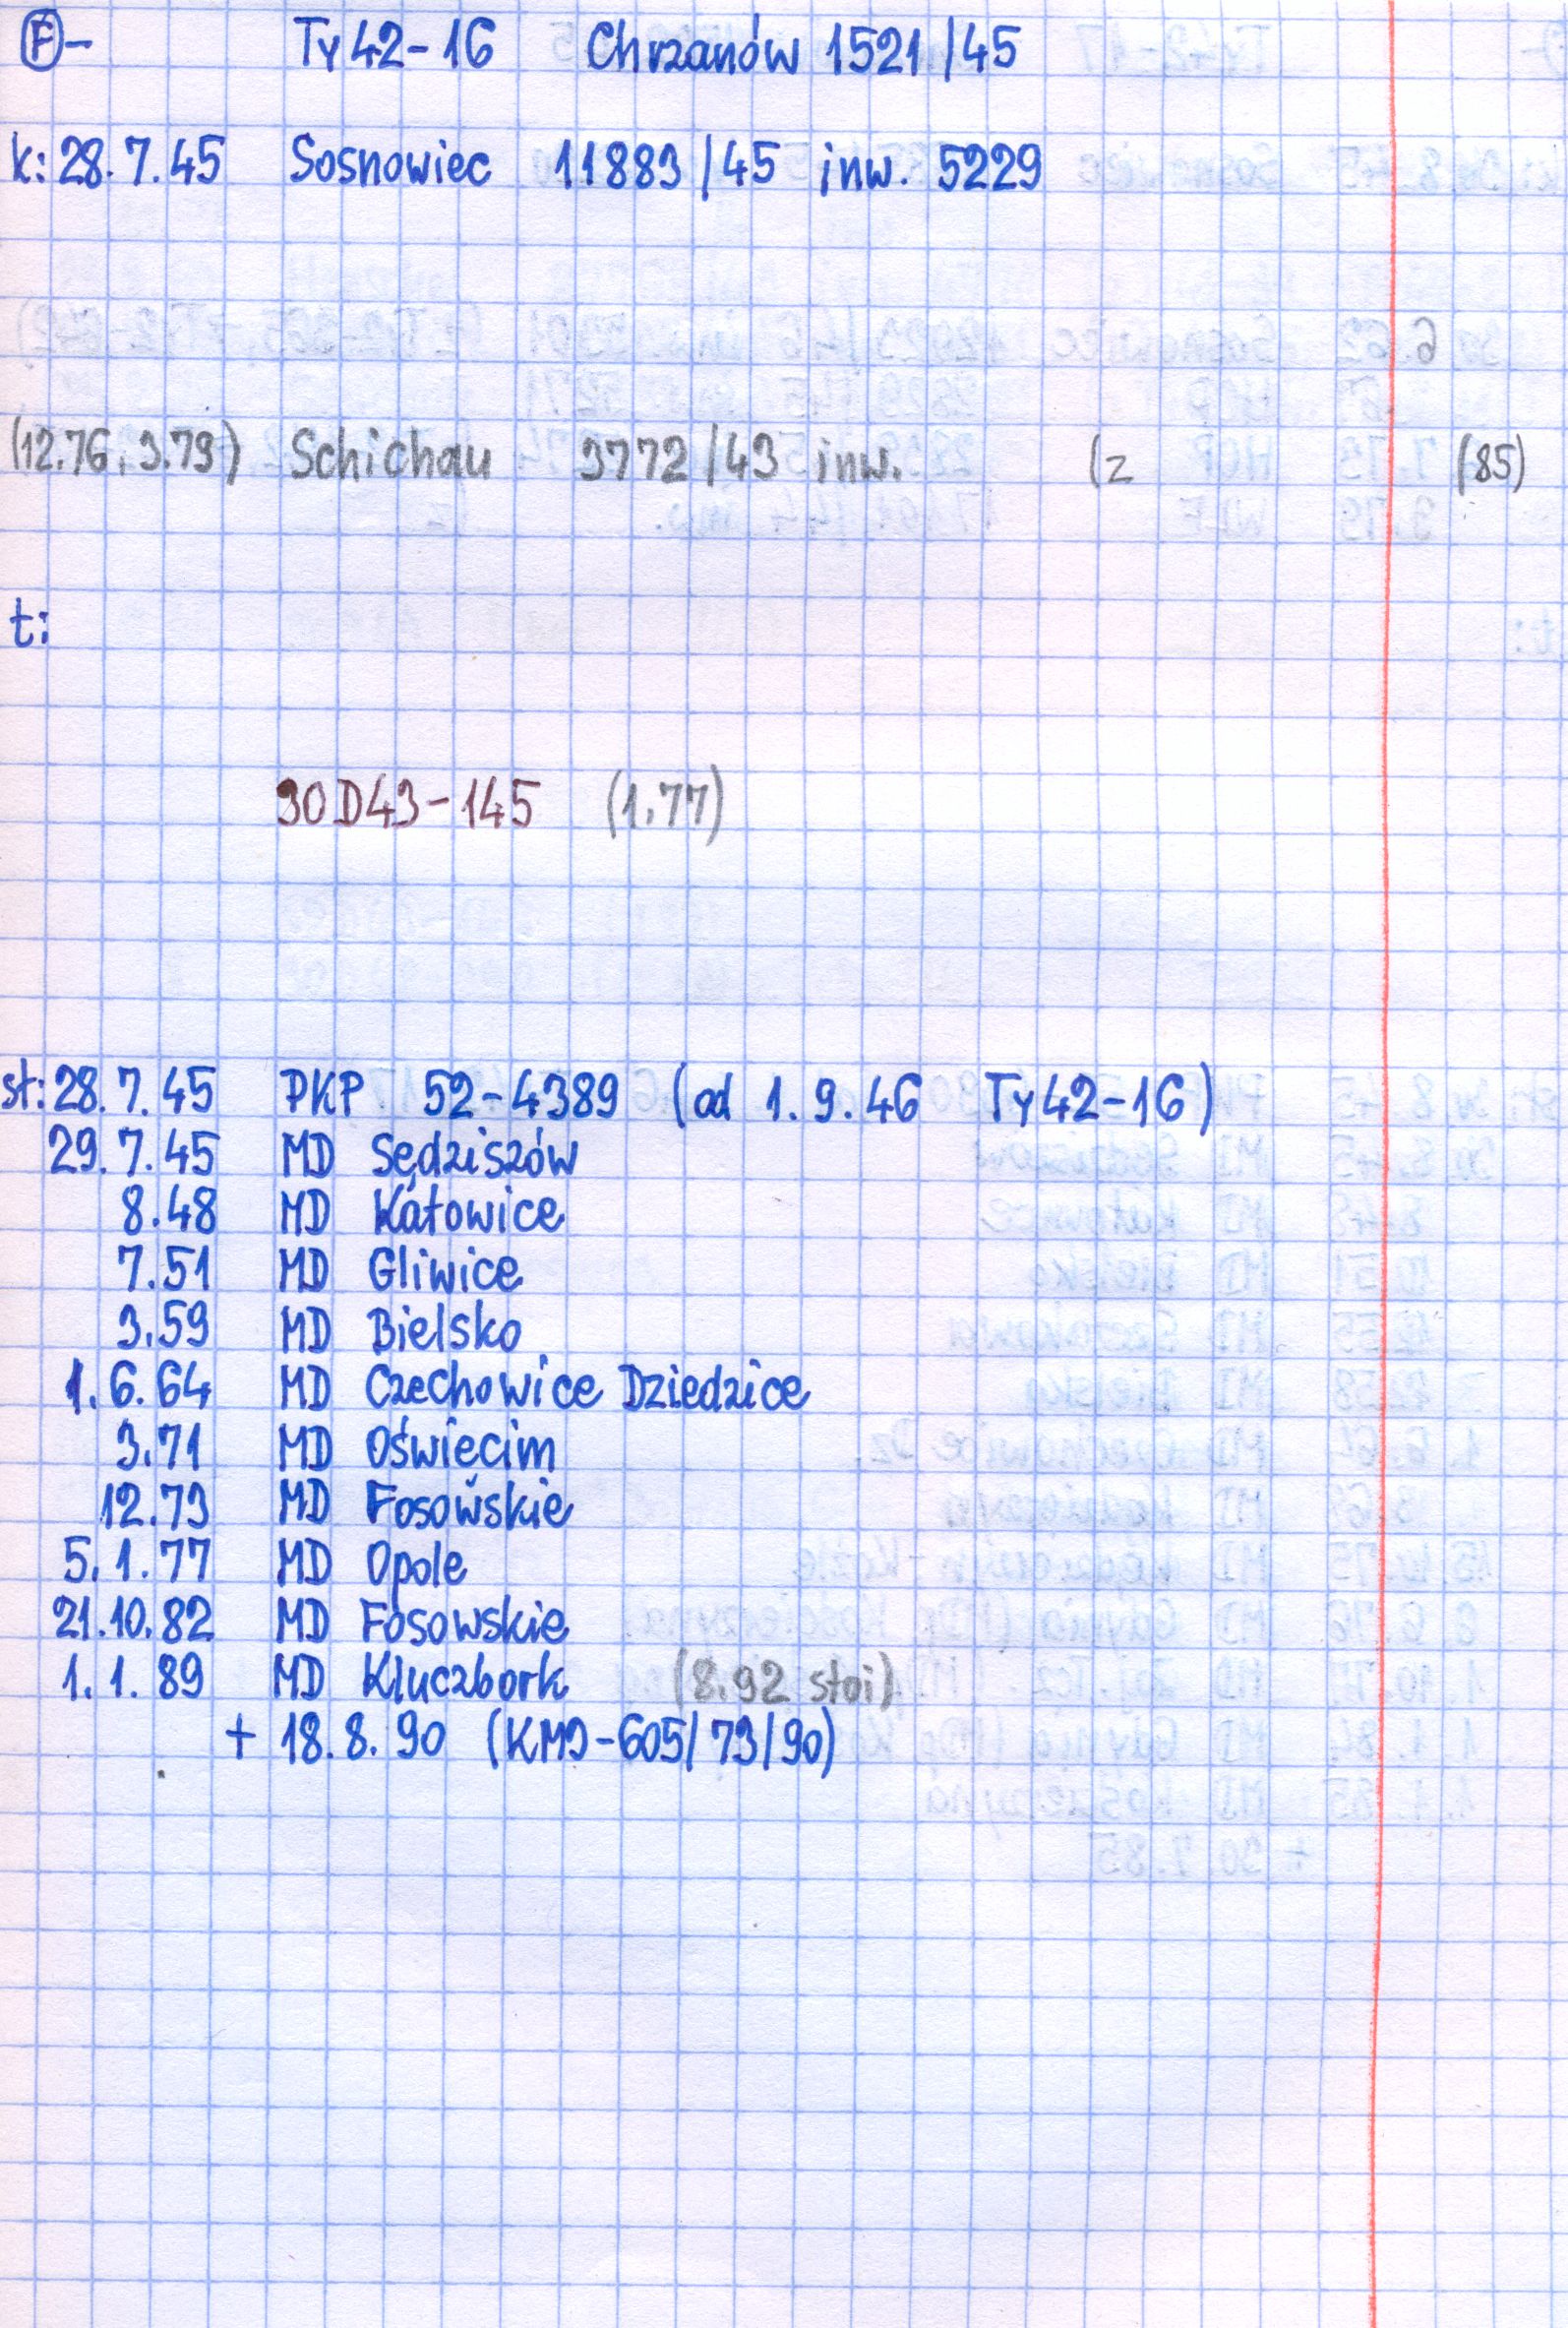 (F)- Ty42-16 Chrzanów 1521/45
k: 28.7.45 Sosnowiec 11883/45 inw. 5229
(12.76, 3.79) Schichau 3772/43 inw. (z (85)
t:
30D43-145 (1.77)
st: 28.7.45 PKP 52-4389 (od 1.9.46 Ty42-16)
29.7.45 MD Sędziszów
8.48 MD Katowice
7.51 MD Gliwice
3.59 MD Bielsko
1.6.64 MD Czechowice Dziedzice
3.71 MD Oświęcim
12.73 MD Fosowskie
5.1.77 MD Opole
21.10.82 MD Fosowskie
1.1.89 MD Kluczbork (8.92 stoi)
+ 18.8.90 (KMD-605/73/90)